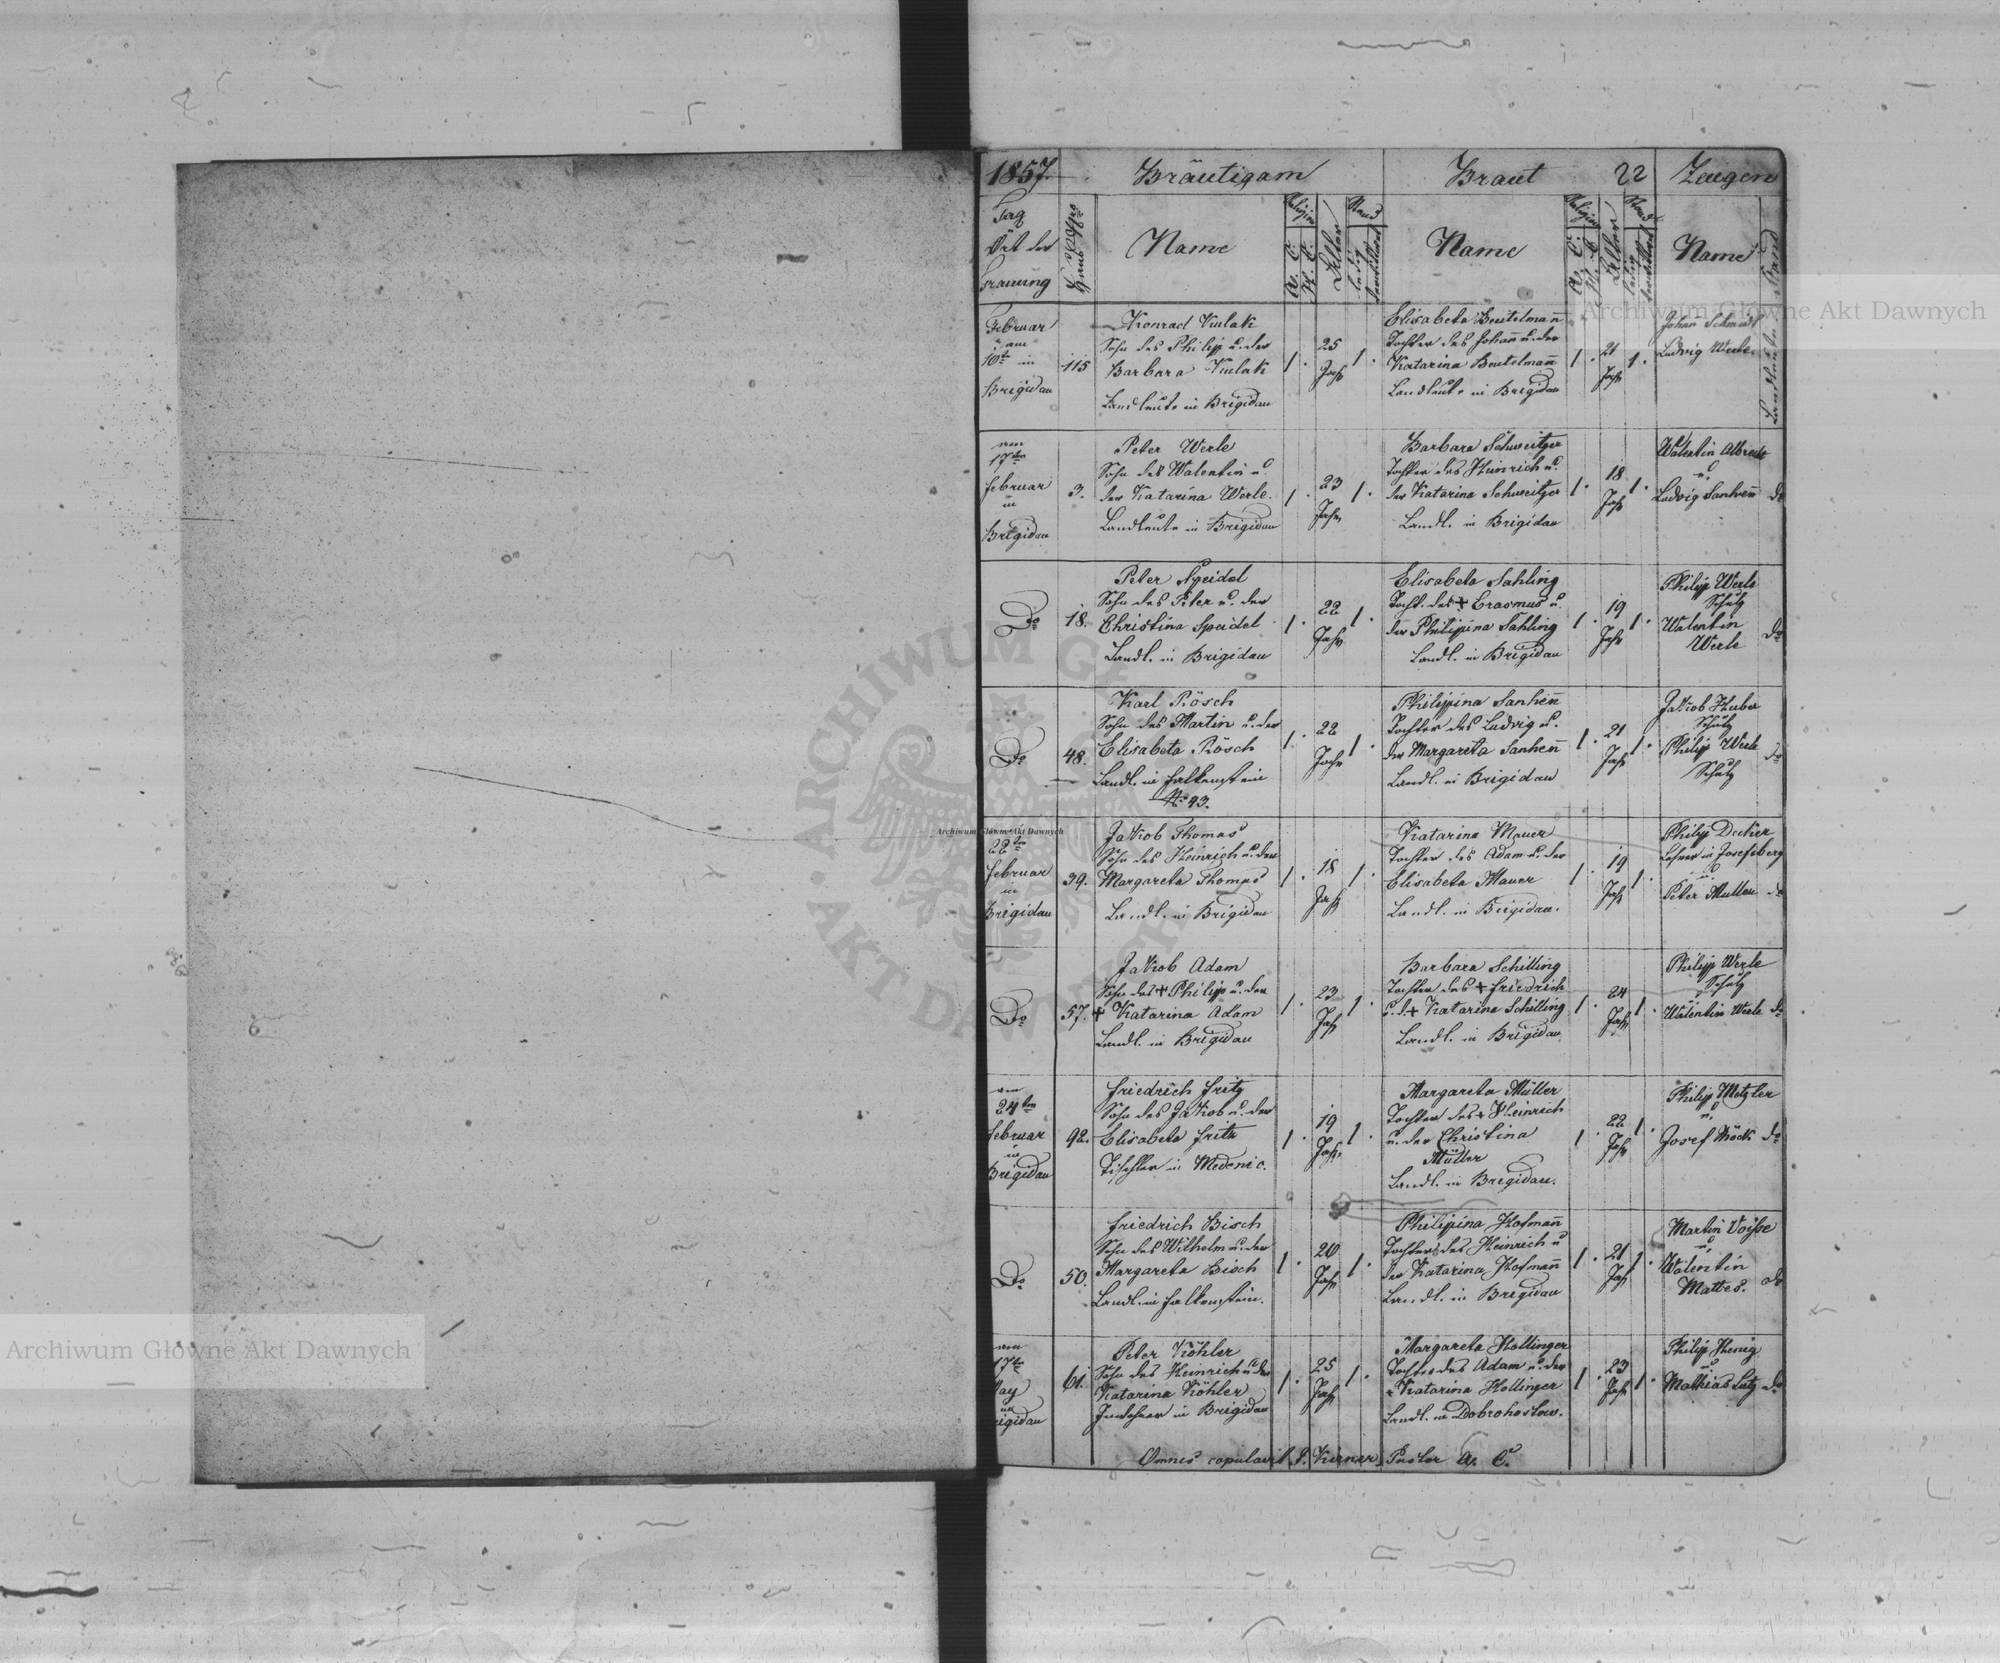 1857. Bräutigam Braut 22 Zeugen
Tag
Ort der
Trauung
Haus Nro
Name
Religion
A. C.
H. C.
Alter
Stand
ledig
verwittwet
Name
Religion
A. C.
H. C.
Alter
Stand
ledig
verwittwet
Name
Stand
Februar
am
10t in
Brigidau
115
Konrad Kulak
Sohn des Philipp u. der
Barbara Kulak
Landleute in Brigidau
1. 25 Jahr 1.
Elisabeta Beutelmañ
Tochter des Johañ u. der
Katarina Beutelmañ
Landleute in Brigidau
1. 21 Jahr 1.
Johañ Schmidt
Ludwig Werle
Landleute
am
17ten
Februar
in
Brigidau
3.
Peter Werle
Sohn des Walentin u
der Katarina Werle.
Landleute in Brigidau
1. 23 Jahr 1.
Barbara Schweitzer
Tochter des Heinrich u.
der Katarina Schweitzer
Landl. in Brigidau
1. 18 Jahr 1.
Walentin Albrecht
u.
Ludwig Sanheñ do
Do
18.
Peter Speidel
Sohn des Peter u. der
Christina Speidel
Landl. in Brigidau
1. 22 Jahr 1.
Elisabeta Sahling
Tocht. des + Erasmus u.
der Philippina Sahling
Landl. in Brigidau
1. 19 Jahr 1.
Philipp Werle
Schulz
Walentin
Werle do
Do
48.
Karl Rösch
Sohn des Martin u. der
Elisabeta Rösch
Landl. in Falkenstein
No 43.
1. 22 Jahr 1.
Philippina Sanheñ
Tochter des Ludwig u.
der Margareta Sanheñ
Landl. in Brigidau
1. 21 Jahr 1.
Jakob Huber
Schulz
Philip Werle do
Schulz
22ten
Februar
in
Brigidau
39.
Jakob Thomas
Sohn des Heinrich u. der
Margareta Thomas
Landl. in Brigidau
1. 18 Jahr 1.
Katarina Mauer
Tochter des Adam u. der
Elisabeta Mauer
Landl. in Brigidau.
1. 19 Jahr 1.
Philip Decker
Lehrer in Josefsberg
u.
Peter Muller do
Do
57.
Jakob Adam
Sohn des + Philipp u. der
+ Katarina Adam
Landl. in Brigidau
1. 23 Jahr 1.
Barbara Schilling
Tochter des + Friedrich
u. d. + Katarina Schilling
Landl. in Brigidau
1. 24 Jahr 1.
Philipp Werle
Schulz
Walentin Werle do
am
24ten
Februar
in
Brigidau
92.
Friedrich Fritz
Sohn des Jakob u. der
Elisabeta Fritz
Tischler in Medenic.
1. 19 Jahr 1.
Margareta Müller
Tochter des + Heinrich
u. der Christina
Müller
Landl. in Brigidau.
1. 22 Jahr 1.
Philip Metzler
u.
Josef Köck do
Do
50.
Friedrich Bisch
Sohn des Wilhelm u. der
Margareta Bisch
Landl. in Falkenstein.
1. 20 Jahr 1.
Philippina Hofmañ
Tochter des Heinrich u
der Katarina Hofmañ
Landl. in Brigidau
1. 21 Jahr 1.
Martin Voisse
u.
Walentin
Mattes. do
am
17t
May
in
rigidau
61.
Peter Köhler
Sohn des Heinrich u. der
Katarina Köhler
Inwohner in Brigidau
1. 25 Jahr 1.
Margareta Hollinger
Tochter des Adam u. der
Katarina Hollinger
Landl. in Dobrohostow.
1. 23 Jahr 1.
Philip Henig
u.
Mathias Lutz do
Omnes copulavit Kierner, Pastor A. C.
Archiwum Główne Akt Dawnych
Archiwum Główne Akt Dawnych
Archiwum Główne Akt Dawnych